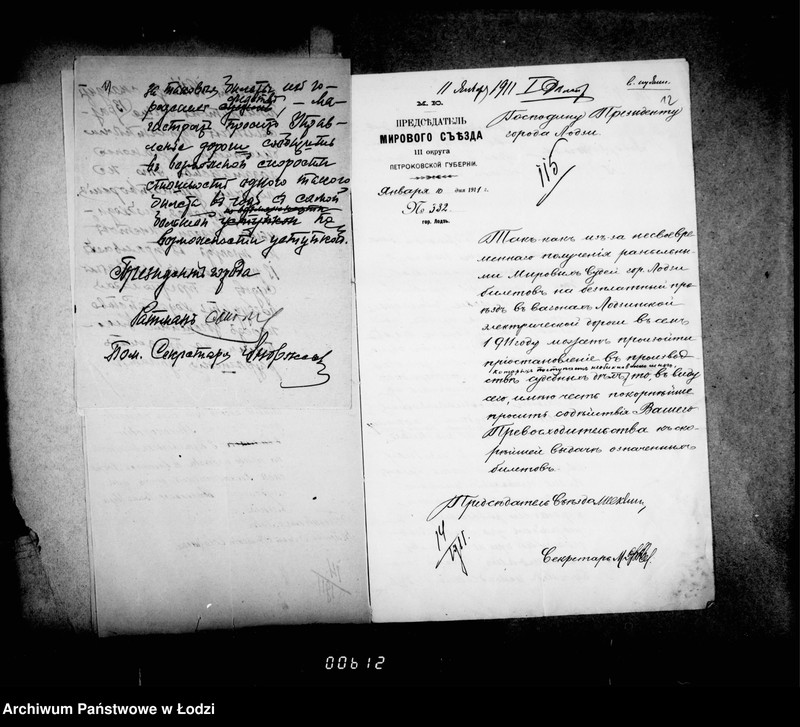 за таковые билеты изъ го-
родскихъ средствъ – Ма-
гистратъ проситъ Управ-
ление дороги сообщить
въ возможной скорости
стоимость одного такого
билета въ годъ съ самой
большой по
возможности уступкой.
Президентъ города
Ратманъ
Пом. Секретаря
11 Января 1911 I
12
М. Ю.
ПРЕДСѢДАТЕЛЬ
МИРОВОГО СЪѢЗДА
III округа
ПЕТРОКОВСКОЙ ГУБЕРНИИ.
Января 10 дня 1911 г.
№ 332
гор. Лодзь.
Господину Президенту
города Лодзи.
115
Такъ какъ изъ за несвоевре-
меннаго получения
Мировыхъ Судей гор. Лодзи
билетовъ на безплатный про-
ѣздъ въ вагонахъ Лодзинской
электрической дороги въ семъ
1911 году можетъ произойти
приостановление въ производ-
ствѣ судебныхъ дѣлъ, то, въ виду
сего, имѣю честь покорнѣйше
просить содѣйствія Вашего
Превосходительства къ ско-
рѣйшей выдачѣ означенныхъ
билетовъ.
Предсѣдатель Съѣзда
14/I 911.
Секретарь
00612
Archiwum Państwowe w Łodzi